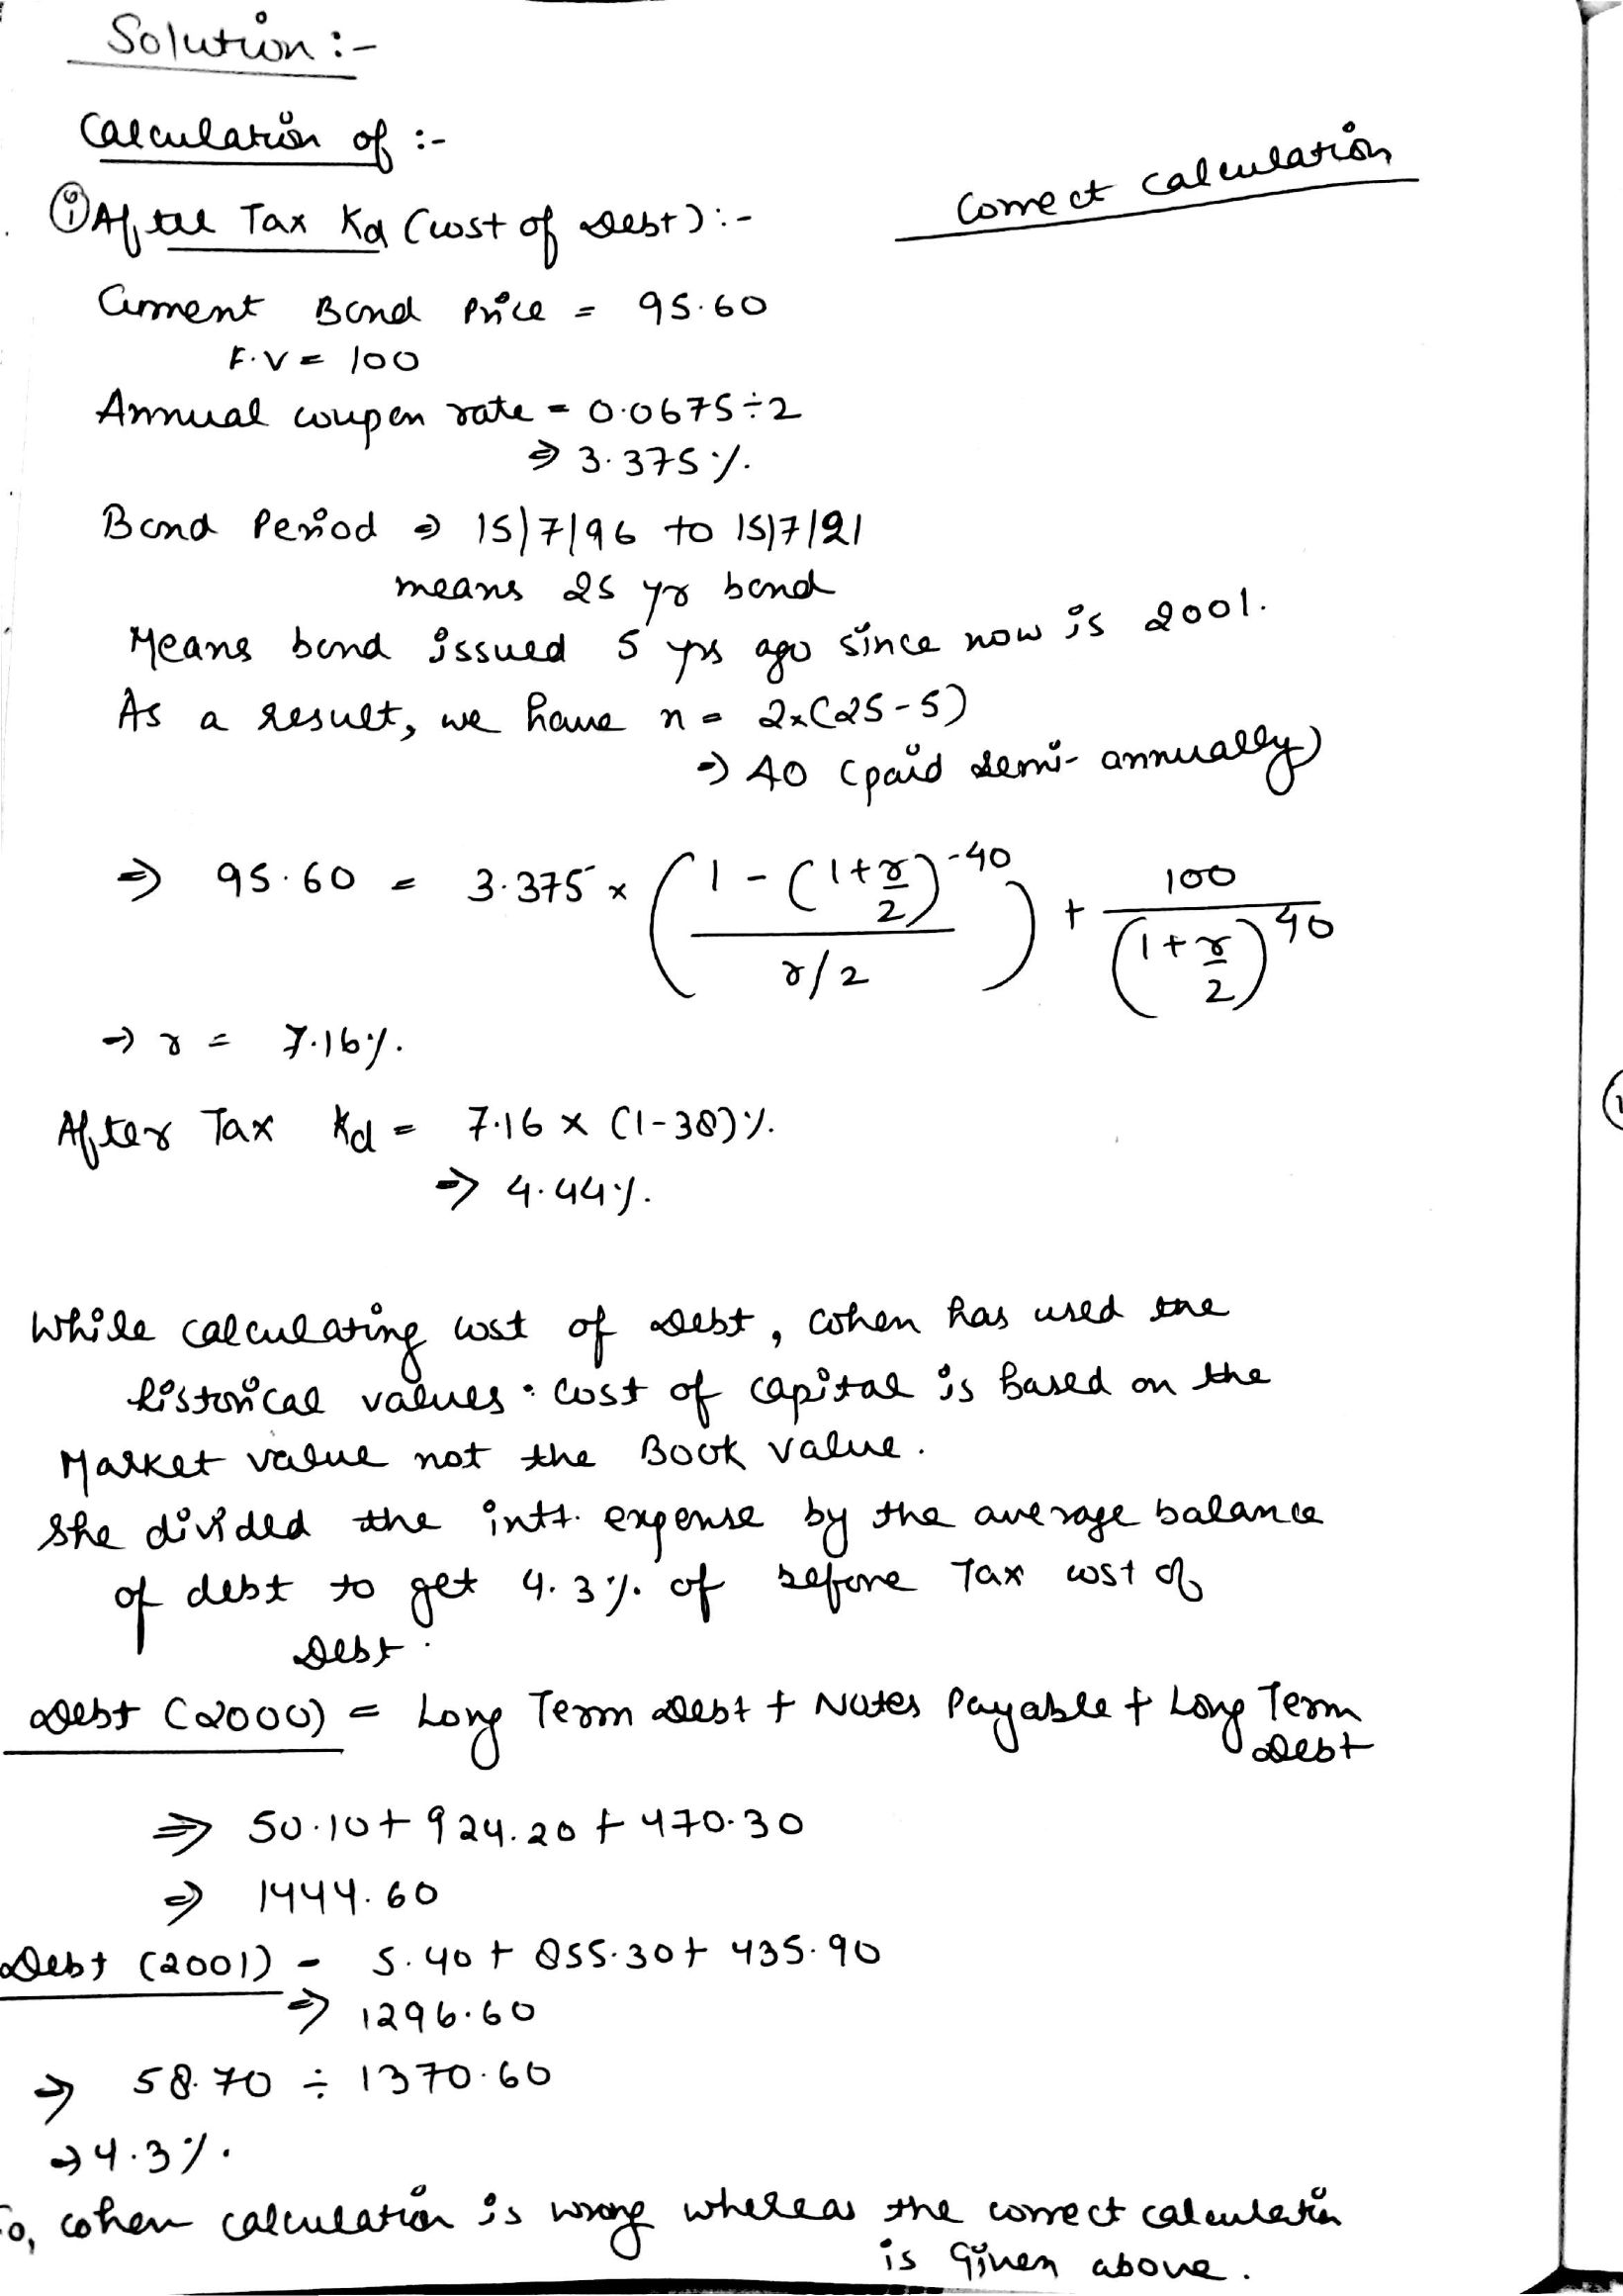 Solution :-
Calculation of :-
Correct Calculation
(i) After Tax Kd (cost of Debt) :-
Current Bond Price = 95.60
F.V = 100
Annual coupon rate = 0.0675÷2
⇒ 3.375%.
Bond Period ⇒ 15/7/96 to 15/7/21
means 25 yr bond
Means bond issued 5 yrs ago since now is 2001.
As a result, we have n = 2×(25-5)
⇒ 40 (paid semi-annually)
⇒ 95.60 = 3.375 × ( (1 - (1+r/2)^-40) / (r/2) ) + 100 / (1+r/2)^40
⇒ r = 7.16%.
After Tax Kd = 7.16 × (1-38)%.
⇒ 4.44%.
While calculating cost of Debt, Cohen has used the
historical values. Cost of capital is based on the
Market value not the Book value.
She divided the intt. expense by the average balance
of debt to get 4.3% of before Tax cost of
Debt.
Debt (2000) = Long Term Debt + Notes Payable + Long Term
Debt
⇒ 50.10 + 924.20 + 470.30
⇒ 1444.60
Debt (2001) = 5.40 + 855.30 + 435.90
⇒ 1296.60
⇒ 58.70 ÷ 1370.60
⇒ 4.3%.
So, Cohen calculation is wrong whereas the correct calculation
is given above.